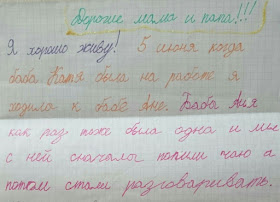 Дорогие мама и папа!!!
Я хорошо живу! 5 июня когда
баба Катя была на работе я
ходила к бабе Ане. Баба Аня
как раз тоже была одна и мы
с ней сначала попили чаю а
потом стали разговаривать.